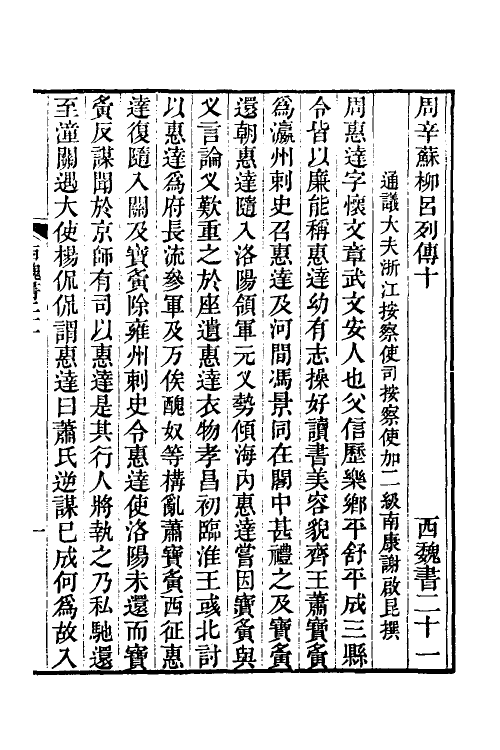 周辛蘇柳呂列傳十　西魏書二十一
通議大夫浙江按察使司按察使加二級南康謝啟昆撰
周惠達字懷文章武文安人也父信歷樂鄉平舒平成三縣
令皆以廉能稱惠達幼有志操好讀書美容貌齊王蕭寶夤
爲瀛州刺史召惠達及河間馮景同在閣中甚禮之及寶夤
還朝惠達隨入洛陽領軍元乂勢傾海內惠達嘗因寶夤與
乂言論乂歎重之於座遺惠達衣物孝昌初臨淮王彧北討
以惠達爲府長流參軍及万俟醜奴等構亂蕭寶夤西征惠
達復隨入關及寶夤除雍州刺史令惠達使洛陽未還而寶
夤反謀聞於京師有司以惠達是其行人將執之乃私馳還
至潼關遇大使楊侃侃謂惠達曰蕭氏逆謀已成何爲故入
西魏書二十一　一